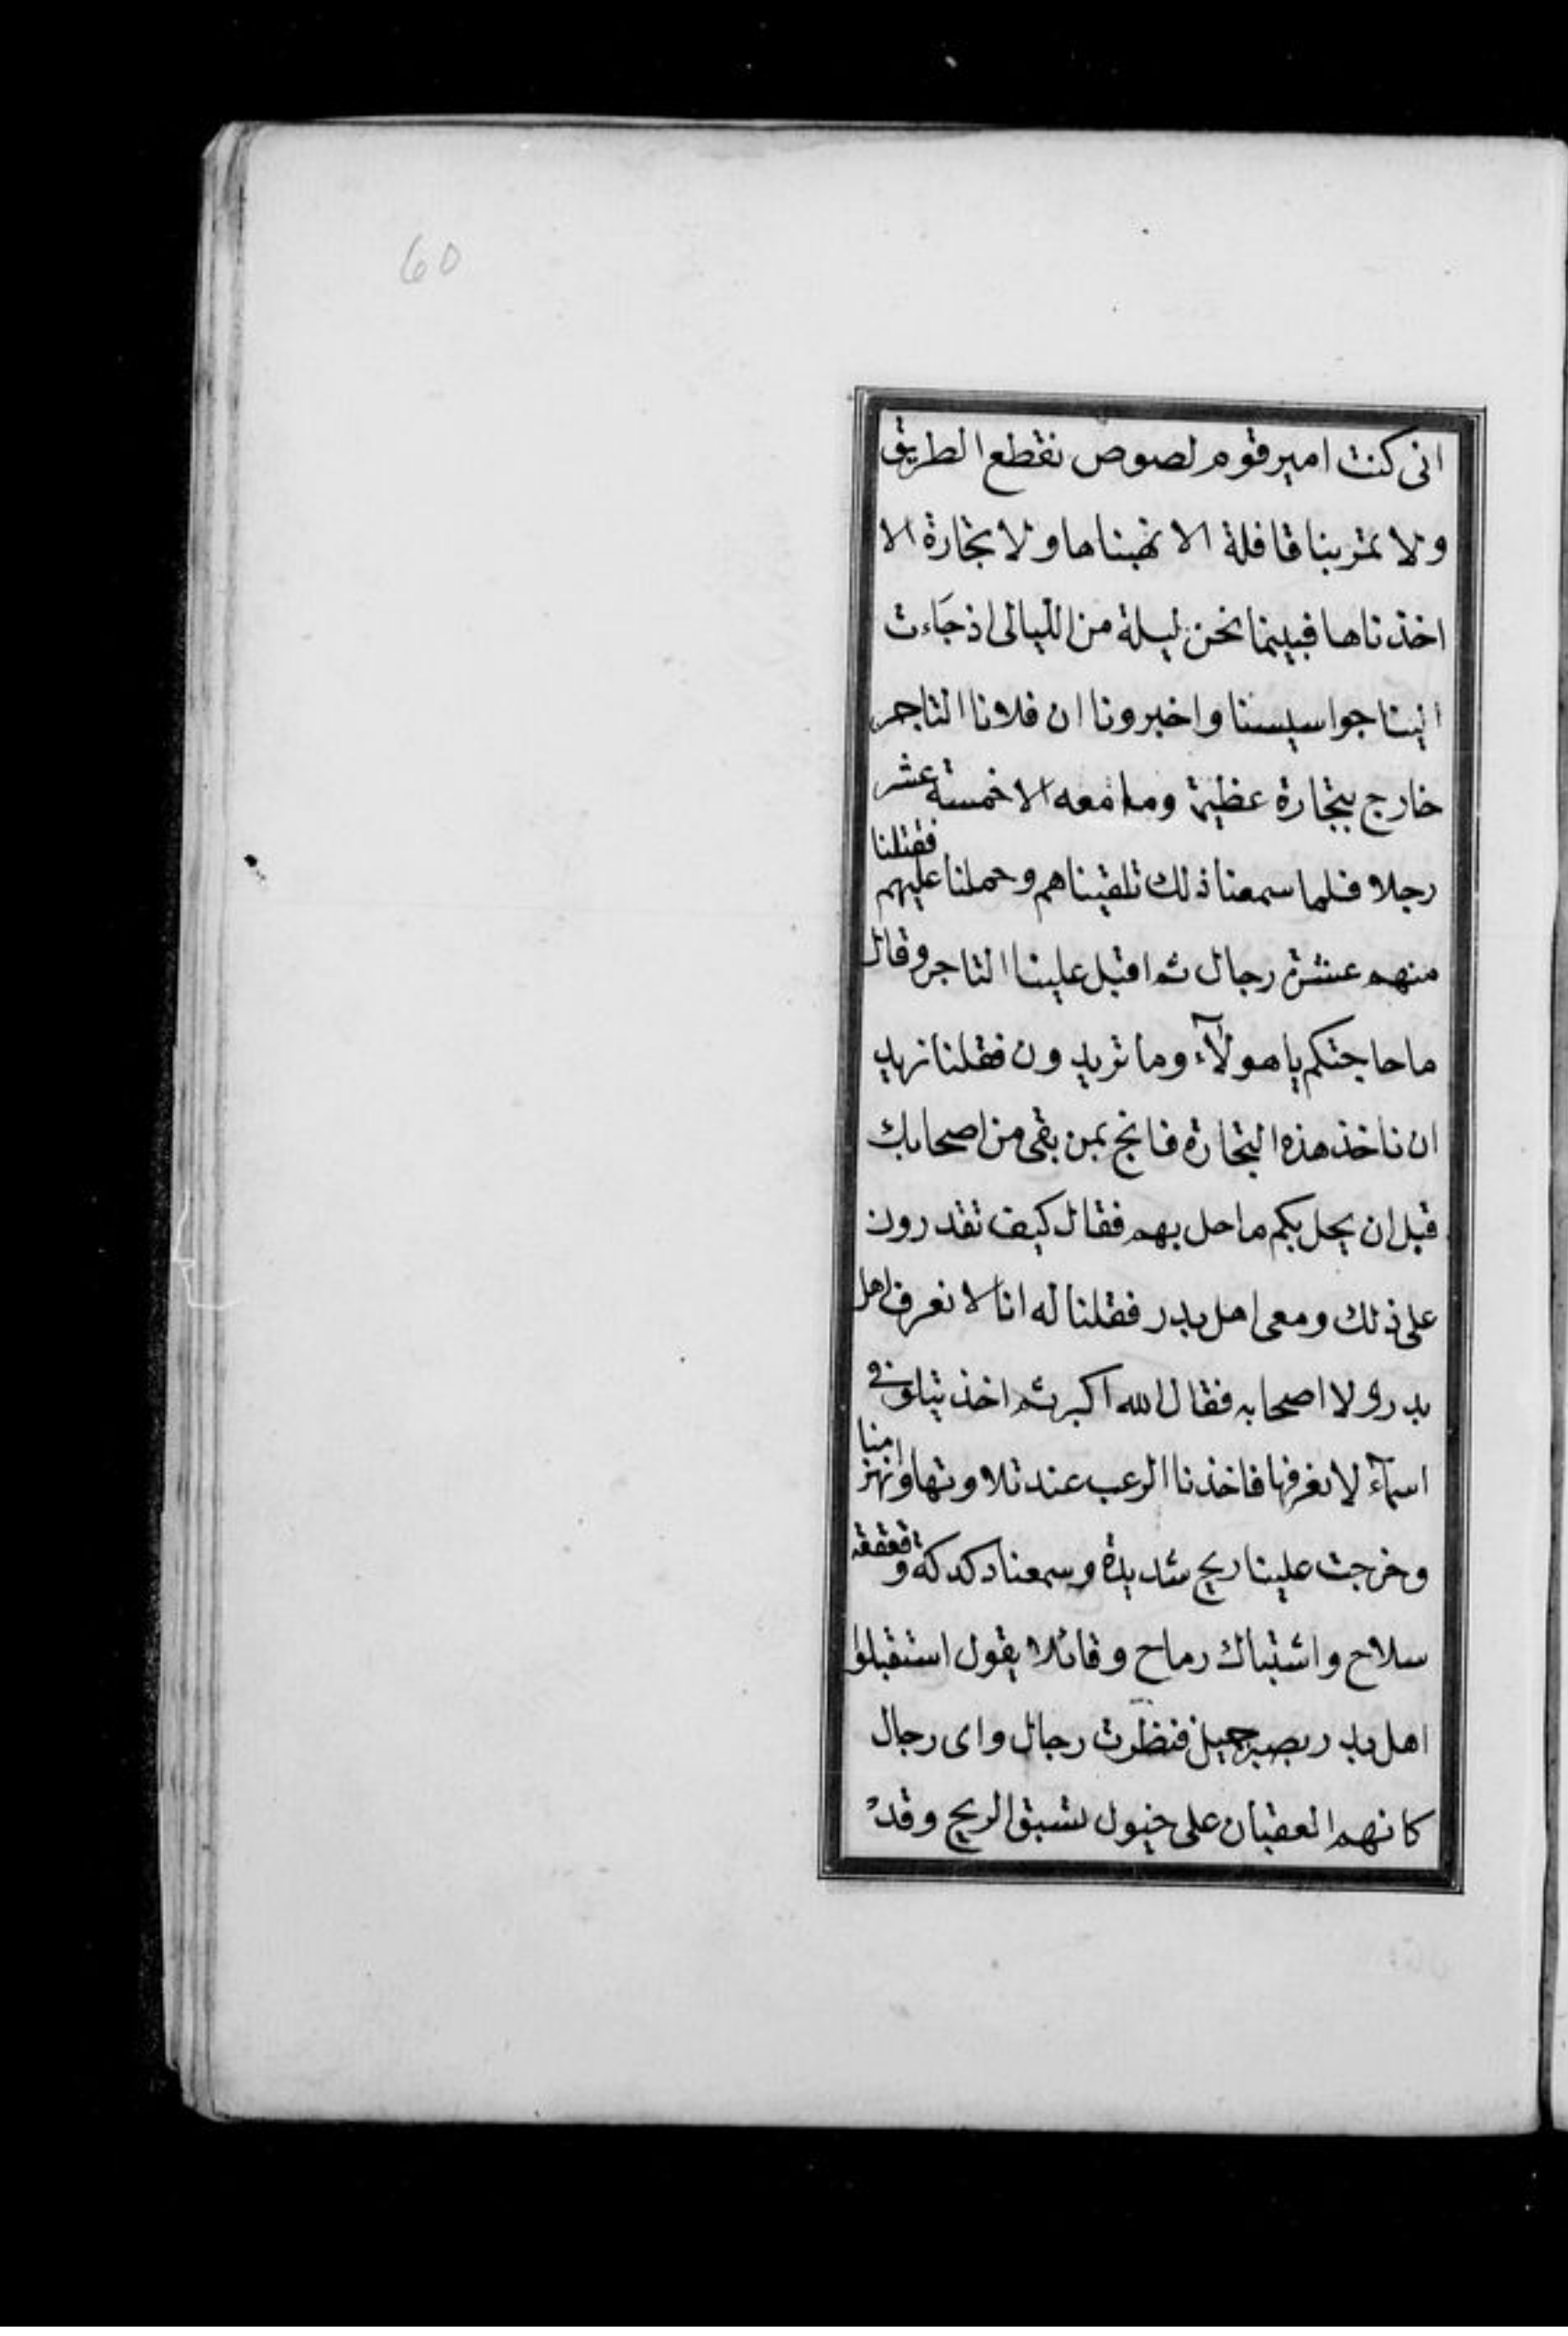 60
انى كنت امير قوم لصوص نقطع الطريق
ولا تمر بنا قافلة الا نهبناها ولا تجارة الا
اخذناها فبينما نحن ليلة من الليالى اذ جاءت
الينا جواسيسنا واخبرونا ان فلانا التاجر
خارج بتجارة عظيمة وما معه الا خمسة عشر
رجلا فلما سمعنا ذلك تلقيناهم وحملنا عليهم فقتلنا
منهم عشرة رجال ثم اقبل علينا التاجر وقال
ما حاجتكم يا هولآء وما تريدون فقلنا نريد
ان ناخذ هذه التجارة فانج بمن بقى من اصحابك
قبل ان يحل بكم ما حل بهم فقال كيف تقدرون
على ذلك ومعى اهل بدر فقلنا له انا لا نعرف اهل
بدر ولا اصحابه فقال الله اكبر ثم اخذ يتلو فى
اسمآء لا نعرفها فاخذنا الرعب عند تلاوتها وانهزمنا
وخرجت علينا ريح شديدة وسمعنا دكدكة وقعقعة
سلاح واشتباك رماح وقائلا يقول استقبلوا
اهل بدر بصبر جميل فنظرت رجال واى رجال
كانهم العقبان على خيول تسبق الريح وقد